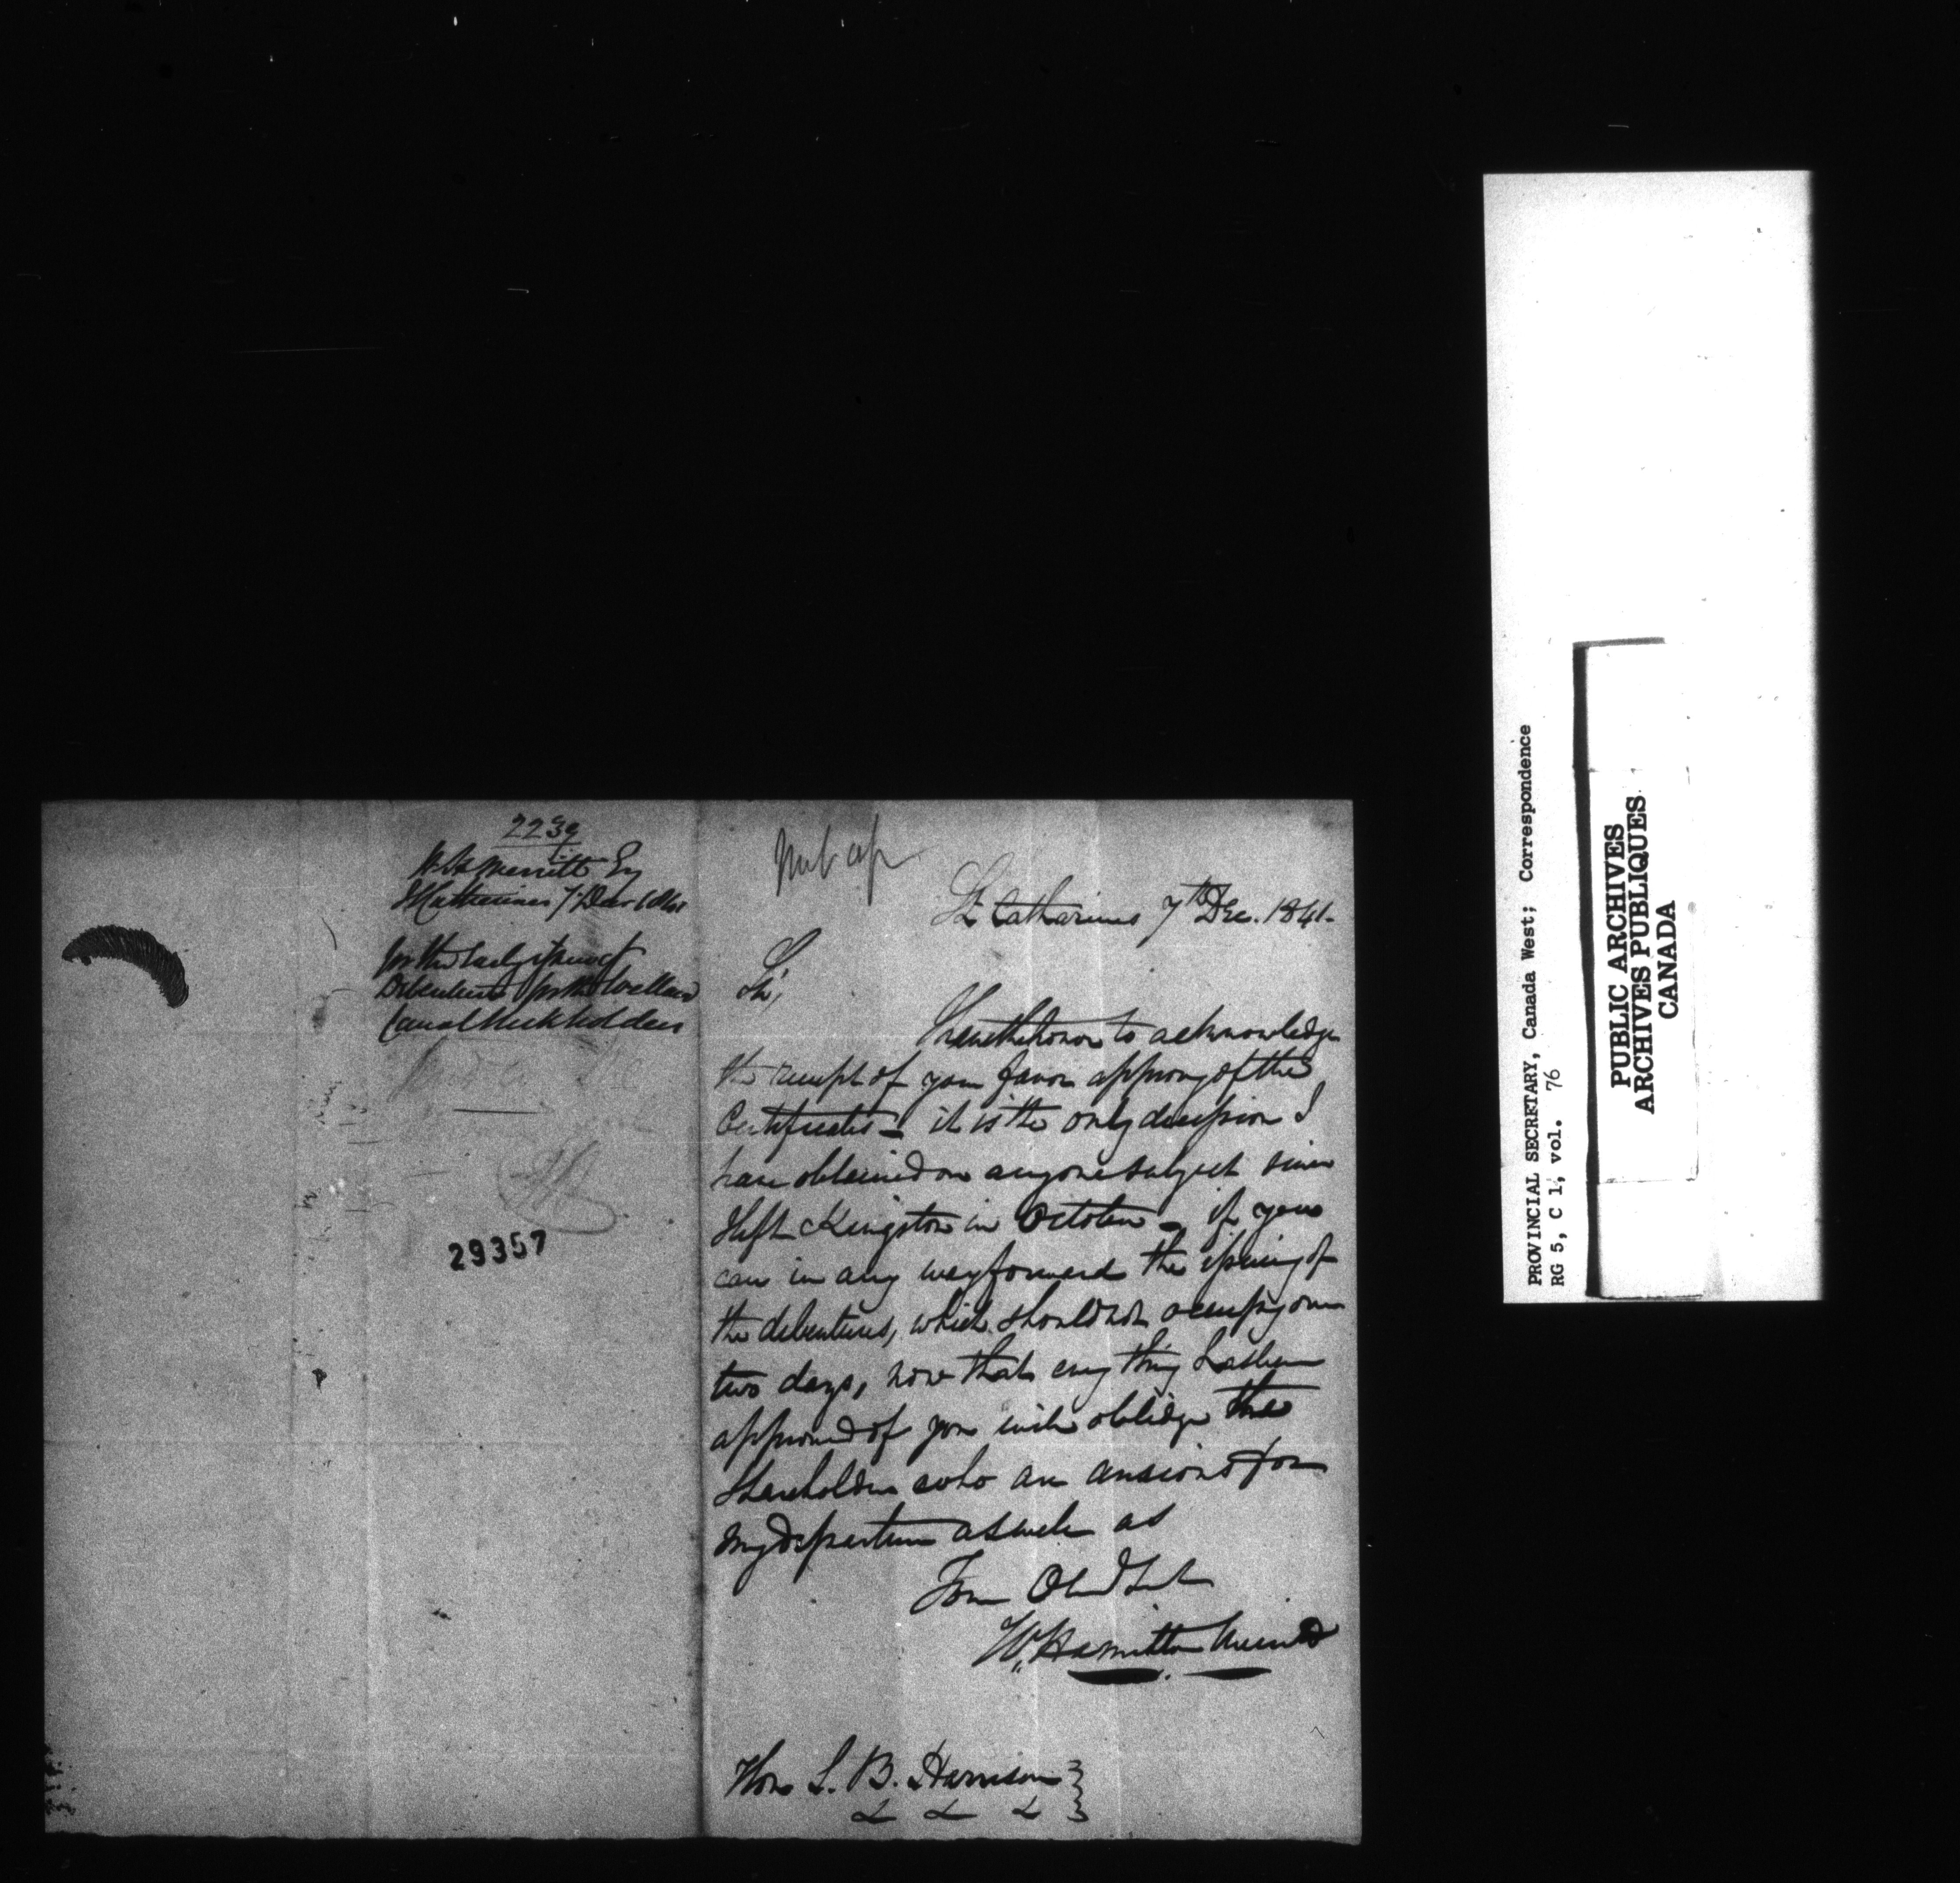 2239
W H Merritt Esq
St Catherines 7 Decr 1841
for the early issue of
Debentures for the Welland
Canal Stockholders
29357
St Catharines 7th Dec. 1841.
Sir,
I have the honor to acknowledge
the receipt of your favor approving of the
Certificates – it is the only decission I
have obtained on any one subject since
I left Kingston in October – if you
can in any way forward the issuing of
the debentures, which should not occupy over
two days, now that every thing has been
approved of you will oblidge the
Shareholders who are ansious for
my departure as well as
Your Obed Sert
W. Hamilton Merritt
Hon S. B. Harrison
PROVINCIAL SECRETARY, Canada West; Correspondence
RG 5, C 1, vol. 76
PUBLIC ARCHIVES
ARCHIVES PUBLIQUES
CANADA